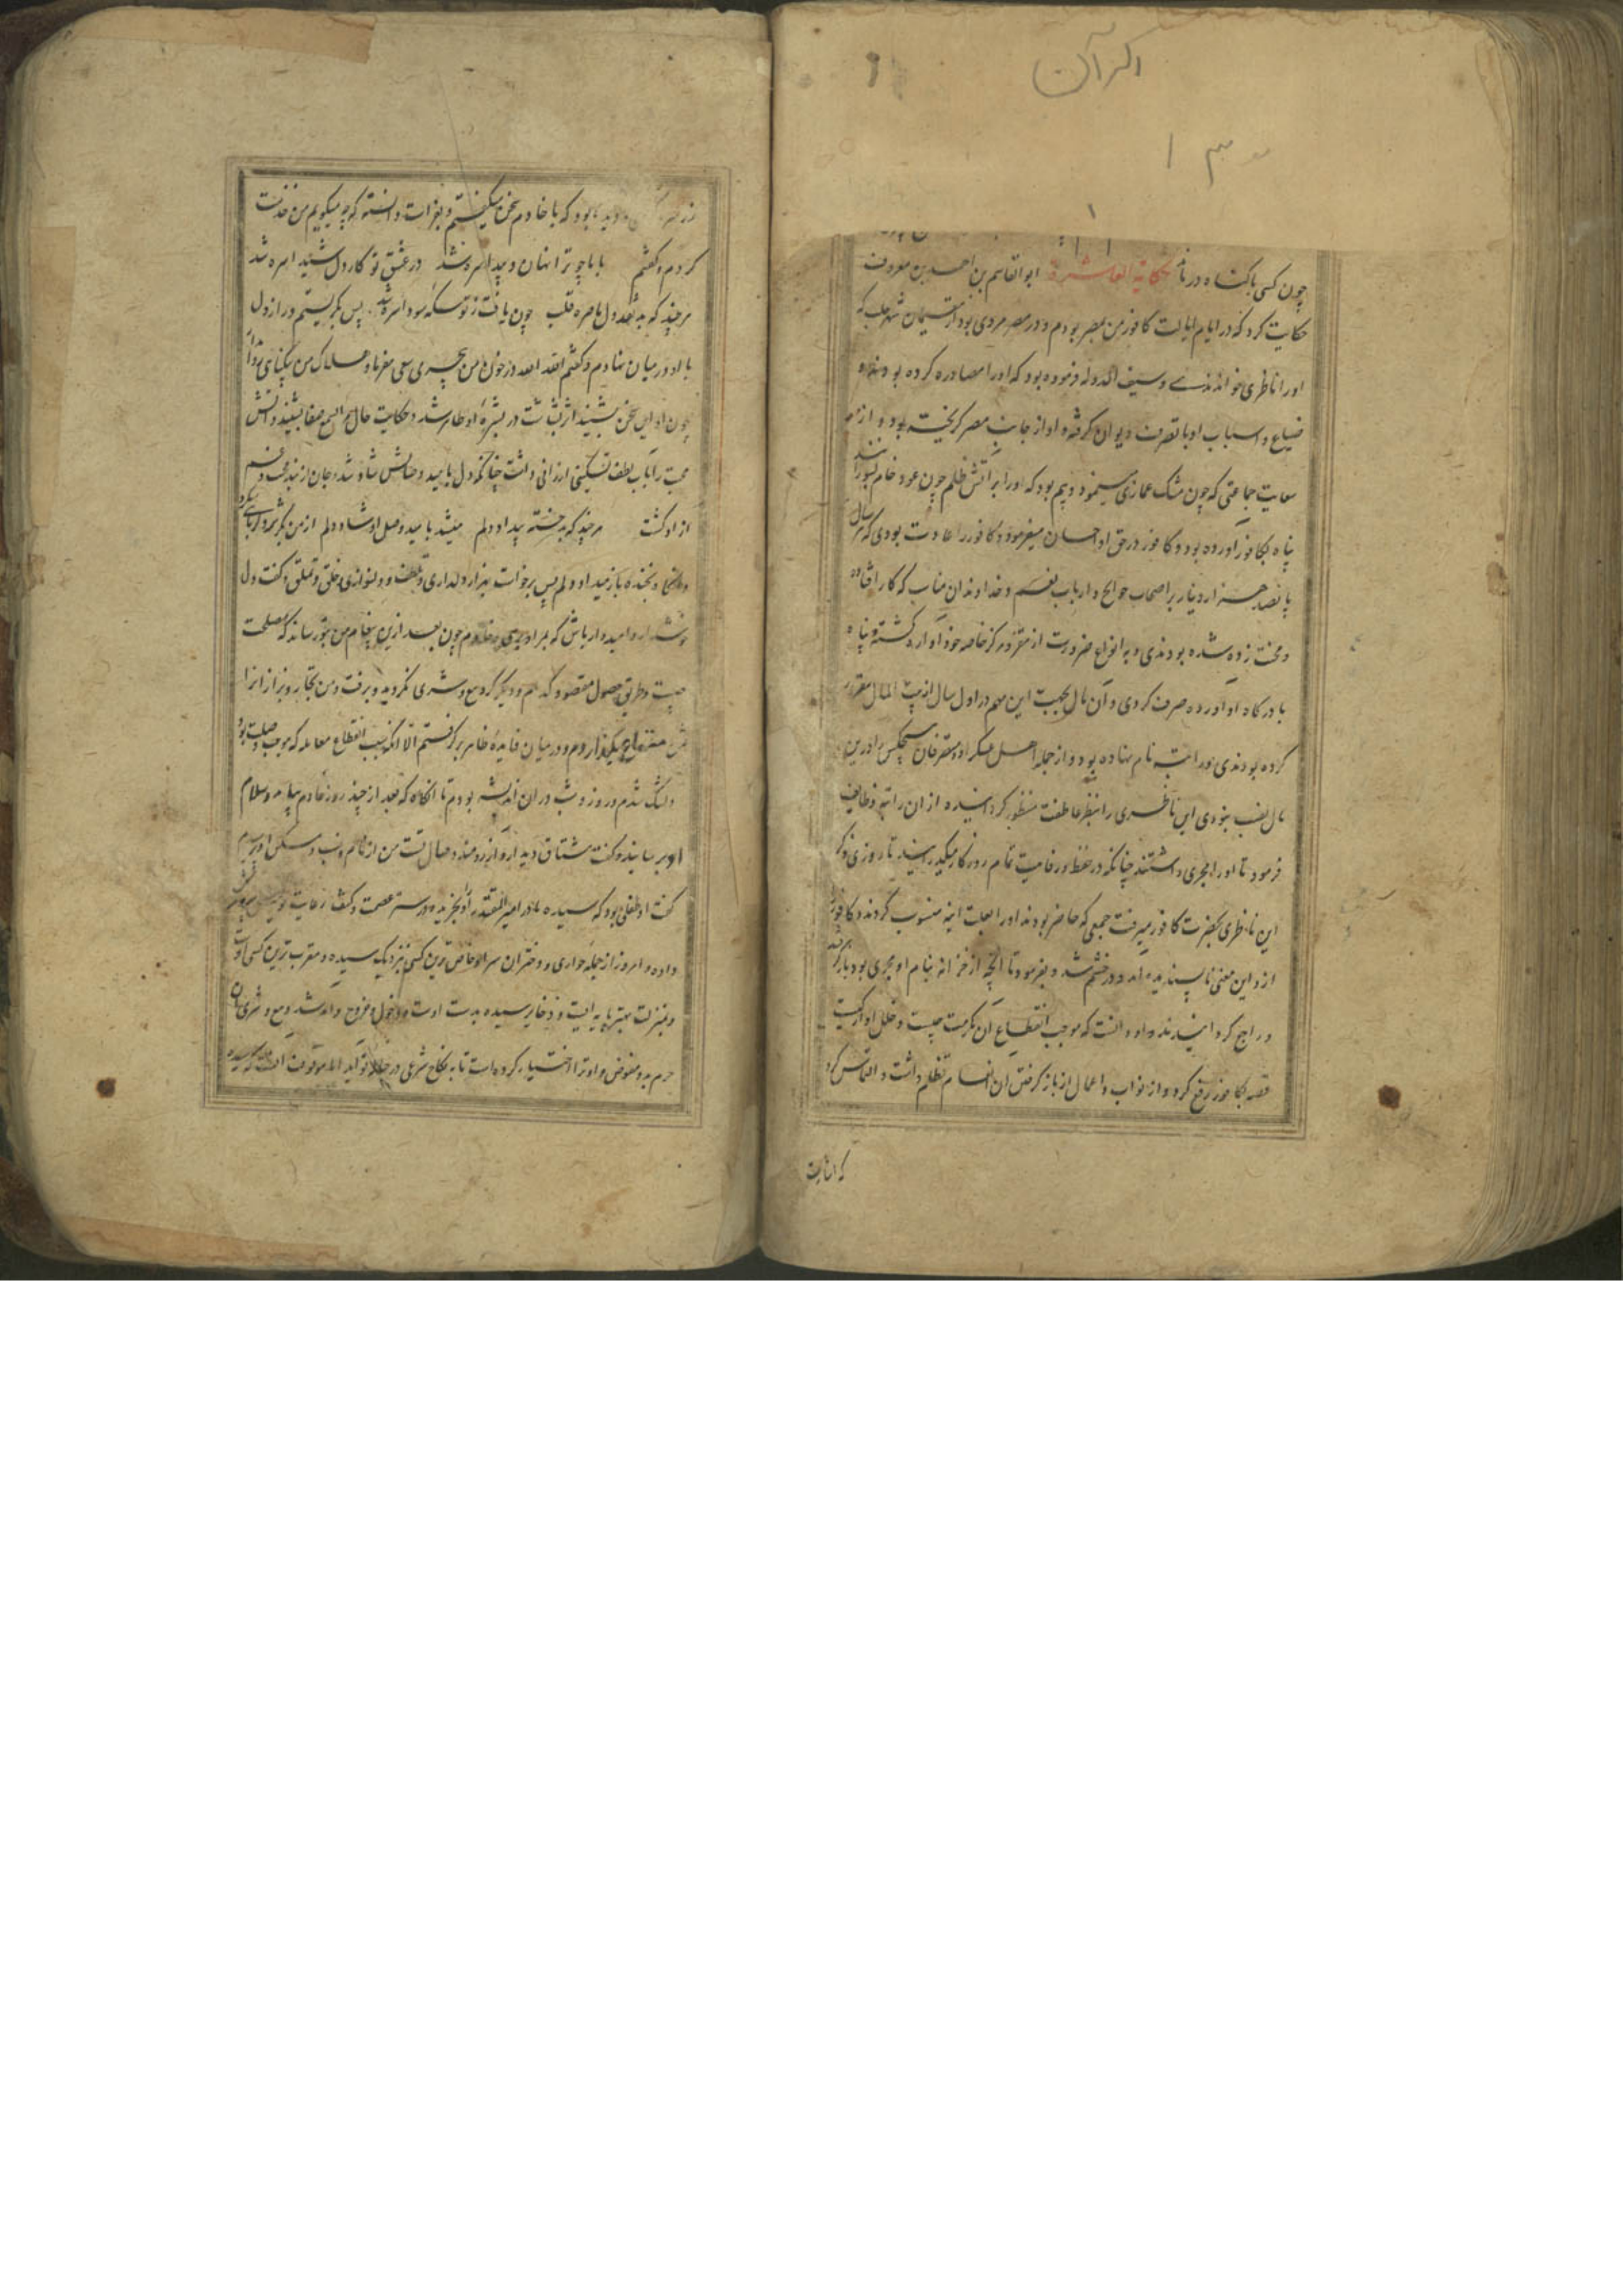 اکر آن
۱۳
۱
چون کسی باکناه درماند حکایة العاشرة ابوالقاسم بن احمد بن معروف
حکایت کرد که در ایام ایالت کافور من بمصر بودم و در مصر مردی بود از مقیمان شهر حلب که
اورا ناظری خواندندے و سیف الدوله فرموده بود که اورا مصادره کرده بودند و
ضیاع و اسباب اوبا تصرف دیوان کرفته و او از جانب مصر کریخته بود و از
سعایت جماعتی که چون مشک غمازی مینمود و بیم بود که اورا بر آتش ظلم چون عود خام بسوزانند
پناه بکافور آورده بود و کافور در حق او احسان میفرمود و کافور را عادت بودی که هر سال
پانصد هزار دینار بر اصحاب حوایج و ارباب نعم و خداوندان مناسب که کار افتاده
و محنت زده شده بودندی و به انواع ضرورت از مقر و مرکز خاصه خود آواره کشته و پناه
با درکاه او آورده صرف کردی و آن مال بجهت این مهم در اول سال از بیت المال مقرر
کرده بودندی و راتبه نام نهاده بود و از جمله اهل عسکر او و متصرفان هیچکس را درین
مال نصیب نبودی این ناظری را بنظر عاطفت منظور کردانیده از ان راتبه وظایف
فرمود تا اورا مجری داشتند چنانکه در حفظ و رفاهیت تمام روزکار میکذرانید تا روزی ذکر
این ناظری بحضرت کافور میرفت جمعی که حاضر بودند اورا بعلت ابنه منسوب کردند و کافور را
ازو این معنی ناپسندیده آمد و در خشم شد و بفرمود تا آنچه از خزانه بنام او مجری بود باز کرفتند
قصه بکافور رفع کرد و از نواب و اعمال از باز کرفتن ان انعام تظلم داشت و التماس کرد
که اثابت
دیده بود که با خادم سخن میکفتم و بفراست دانسته که چه میکویم من خدمت
کردم و کفتم بابا چو ترا نهان و پیدا سره شد در عشق تو کار دل شیدا سره شد
هرچند که بد نقد دل ما سره قلب چون یافت ز تو سکه سودا سره شد پس بکریستم و راز دل
با او در میان نهادم و کفتم الله الله در خون من بیچری سعی مفرما و هلاک من بیکناهی روا
چون او این سخن بشنید اثر بشاشت در بشره او ظاهر شد و حکایت حال مرا بسمع صفا بشنید و آتش
محبت را بآب لطف تسکینی ارزانی داشت چنانکه دل بامید وصالش شاد شد و جان از بند محنت و غم
آزاد کشت هرچند که بد خسته بیداد دلم میشد بامید وصل او شاد دلم از من بکریزد
و بخنده باز میداد دلم پس برخواست بهزار دلداری و تلطف و دلنوازی و خلق و تملق و کفت دل
خوش دار و امیدوار باش که بمراد برسی و خادم چون بعد ازین پیغام من بتو رساند که مصلحت
چیست و طریق حصول مقصود کدام و دیکر کرد بیع و شری نکردید و برفت و من تجار و بزاز انرا
دلتنک شدم و روز و شب دران اندیشه بودم تا آنکاه که بعد از چند روز خادم بیامد و سلام
او برسانید و کفت مشتاق دیدار و آرزومند وصال تست من از نام و نسب و مسکن او پرسیدم
کفت او طفلی بود که سیده مادر امیر المقتدر او را بخریده و در ستر عصمت و کنف رعایت خویش پرورش
داده و امروز از جمله جواری و دختران سرا او خاص ترین کسی نزدیک سیده و مقرب ترین کسی اوست
و بمنزلت بهتر پایه ایست و ذخایر سیده بدست اوست و دخول و خروج و آمد شد و بیع و شری ان
حرم بدو مفوض و او ترا اختیار کرده است تا به نکاح شرعی در حباله تو آید